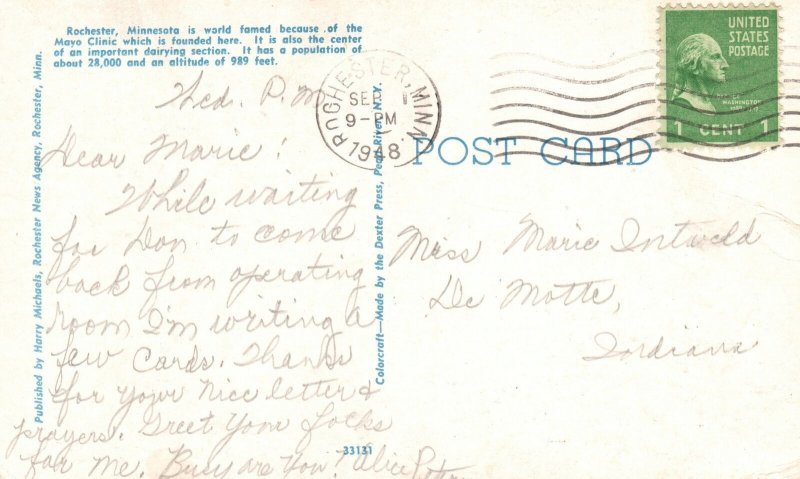 Rochester, Minnesota is world famed because of the
Mayo Clinic which is founded here. It is also the center
of an important dairying section. It has a population of
about 28,000 and an altitude of 989 feet.
Published by Harry Michaels, Rochester News Agency, Rochester, Minn.
Wed. P.M.
Dear Marie!
While waiting
for Don to come
back from operating
room I'm writing a
few cards. Thanks
for your nice letter &
prayers. Greet your folks
for me. Busy are you? Alice
33131
Colorcraft—Made by the Dexter Press, Pearl River, N.Y.
ROCHESTER, MINN.
SEP 1
9-PM
1948
POST CARD
UNITED
STATES
POSTAGE
WASHINGTON
1 CENT 1
Miss Marie
De Motte,
Indiana